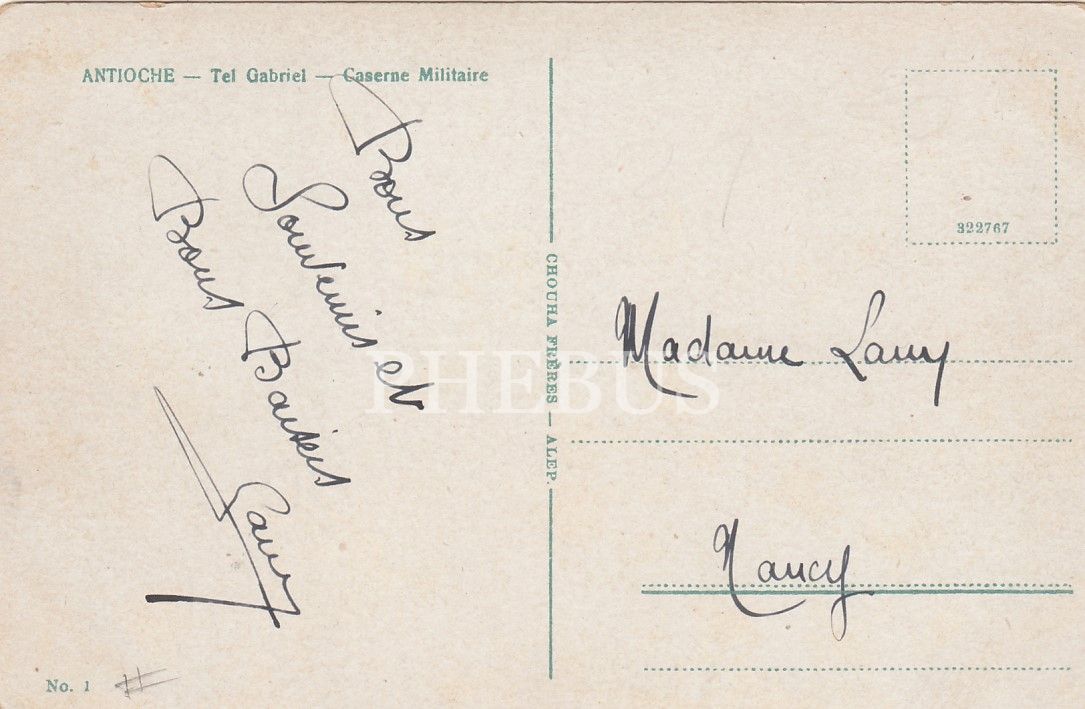 ANTIOCHE — Tel Gabriel — Caserne Militaire
Bons
Souvenirs et
Bons Baisers
Lamy
No. 1
CHOUHA FRÈRES — ALEP.
322767
Madame Lamy
Nancy
PHEBUS